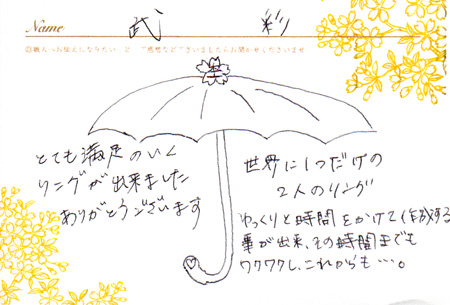 Name 武 彩
◎職人へお伝えになりたいこと、ご感想などございましたらお聞かせくださいませ
とても満足のいく
リングが出来ました
ありがとうございます
世界に1つだけの
2人のリング
ゆっくりと時間をかけて作成する
事が出来、その時間までも
ワクワクし、これからも…。